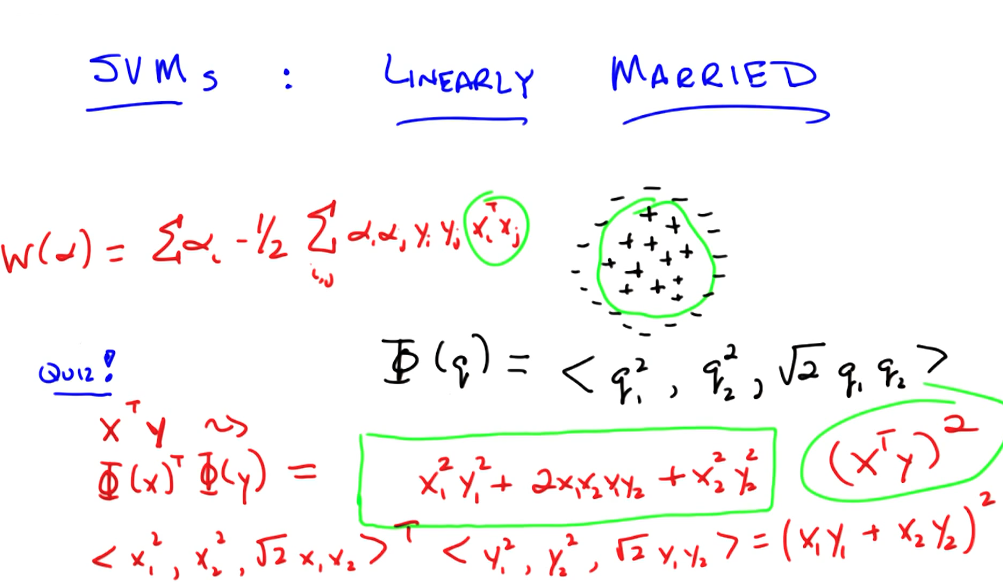 SVMs : LINEARLY MARRIED
W(α) = Σαᵢ - 1/2 Σᵢ,ⱼ αᵢαⱼ yᵢ yⱼ xᵢᵀxⱼ
Φ(q) = < q₁², q₂², √2 q₁ q₂ >
QUIZ!
xᵀy ⇝
Φ(x)ᵀ Φ(y) = x₁²y₁² + 2x₁x₂y₁y₂ + x₂²y₂² (xᵀy)²
< x₁², x₂², √2 x₁x₂ >ᵀ < y₁², y₂², √2 y₁y₂ > = (x₁y₁ + x₂y₂)²